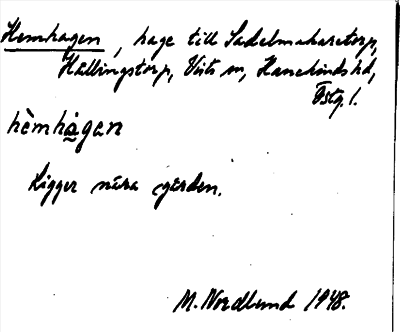 Hemhagen, hage till Sadelmakaretorp,
Hällingstorp, Viits sn, Hanekinds hd,
Östg. l.
hèmhàgan
Ligger nära gården.
M. Nordlund 1948.